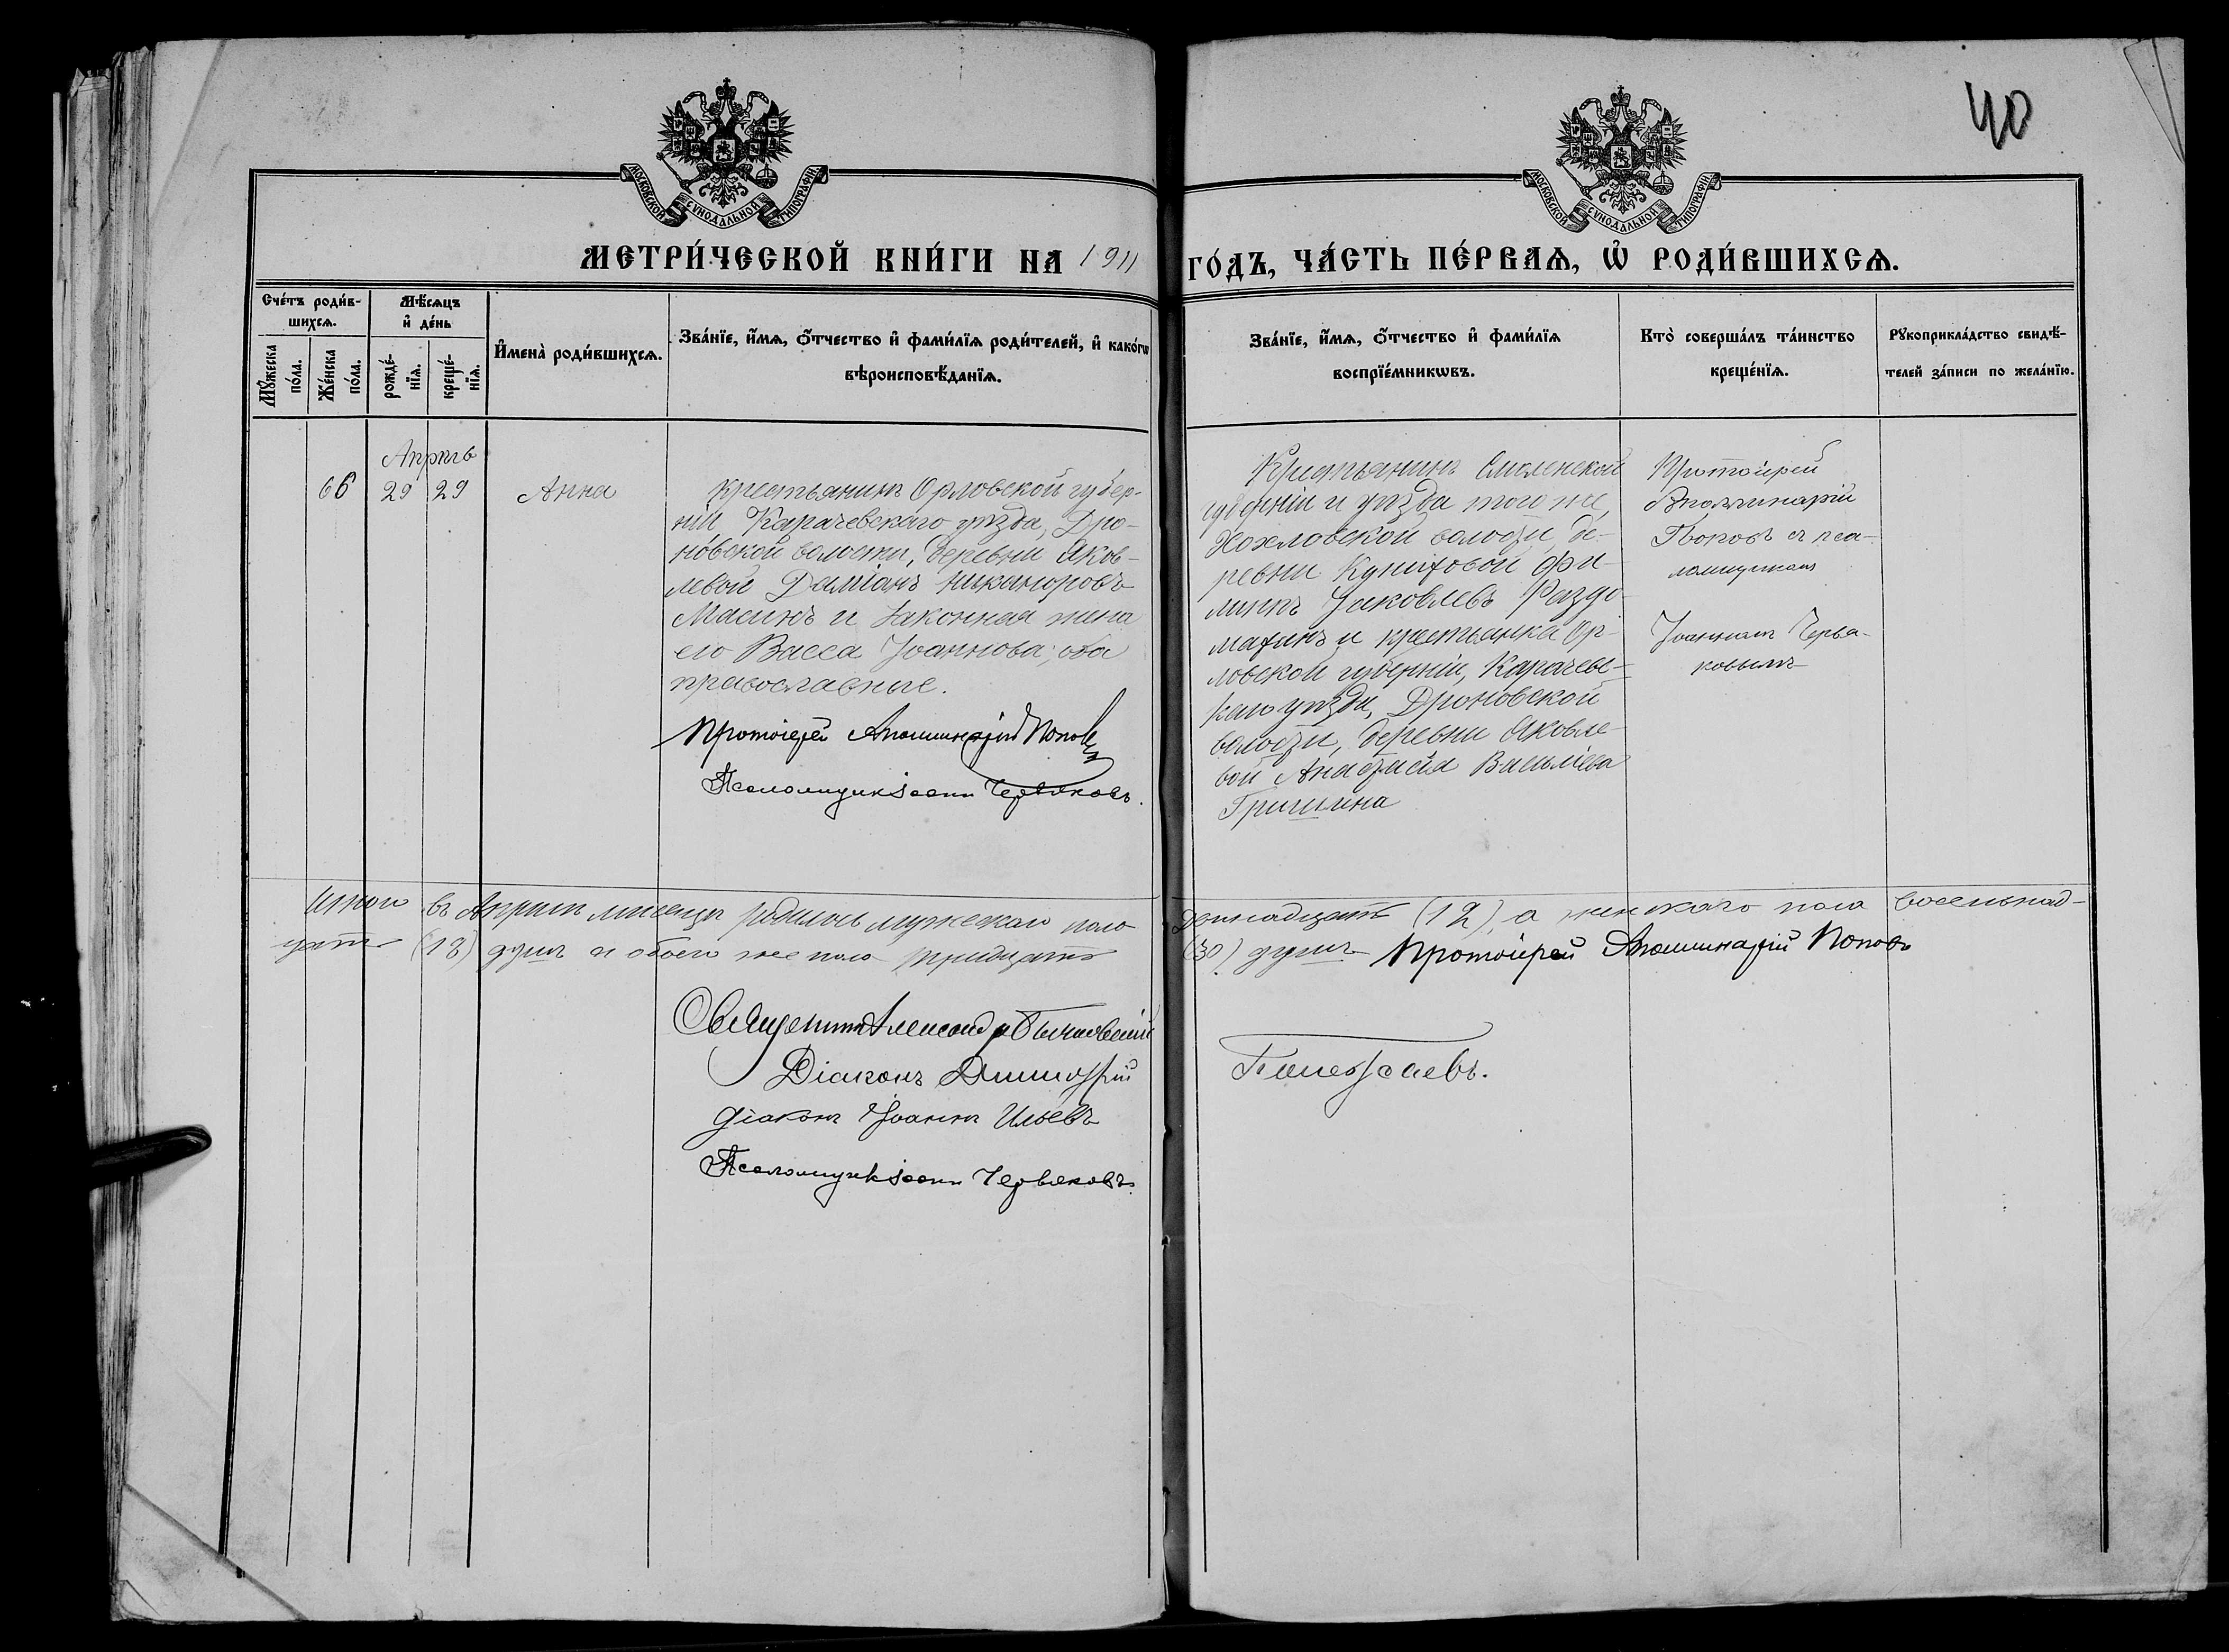 40
МОСКОВСКОЙ СѴНОДАЛЬНОЙ ТИПОГРАФІИ
МОСКОВСКОЙ СѴНОДАЛЬНОЙ ТИПОГРАФІИ
МЕТРИ́ЧЕСКОЙ КНИ́ГИ НА 1911 ГО́ДЪ, ЧА́СТЬ ПЕ́РВАѦ, Ѡ҆ РОДИ́ВШИХСѦ.
Сче́тъ роди́в-
шихсѧ.
Мѣ́сѧцъ
и҆ де́нь
Мꙋ́жеска
по́ла.
Же́нска
по́ла.
рожде́-
нїѧ.
креще́-
нїѧ.
И҆мена̀ роди́вшихсѧ.
Зва́нїе, и҆́мѧ, ѻ҆́тчество и҆ фами́лїѧ роди́телей, и҆ како́гѡ
вѣроисповѣ́данїѧ.
Зва́нїе, и҆́мѧ, ѻ҆́тчество и҆ фами́лїѧ
воспрїе́мникѡвъ.
Кто̀ соверша́лъ та́инство
креще́нїѧ.
Рꙋкоприкла́дство свидѣ́-
телей за́писи по жела́нїю.
Апрѣль
66 29 29 Анна
Крестьянинъ Орловской губер-
ніи Карачевскаго уѣзда, Дро-
новской волости, деревни Яков-
левой Даміанъ Никаноровъ
Масинъ и законная жена
его Васса Іоаннова; оба
православные.
Протоіерей Аполлинарій Поповъ
Псаломщикъ Іоаннъ Червяковъ.
Крестьянинъ Смоленской
губерніи и уѣзда того же,
Хохловской волости, де-
ревни
Яковлевъ
и крестьянка Ор-
ловской губерніи, Карачевс-
каго уѣзда, Дроновской
волости, деревни Яковле-
вой Анастасія Васильева
Гришина
Протоіерей
Аполлинарій
Поповъ съ пса-
ломщикомъ
Іоанномъ Червя-
ковымъ
Итого въ Апрѣлѣ мѣсяцѣ родилось мужескаго пола двѣнадцать (12), а женскаго пола восемнад-
цать (18) душъ а обоего же пола тридцать (30) душъ. Протоіерей Аполлинарій Поповъ
Священникъ Александръ
Діаконъ Димитрій
Діаконъ Іоаннъ Ильевъ
Псаломщикъ Іоаннъ Червяковъ.